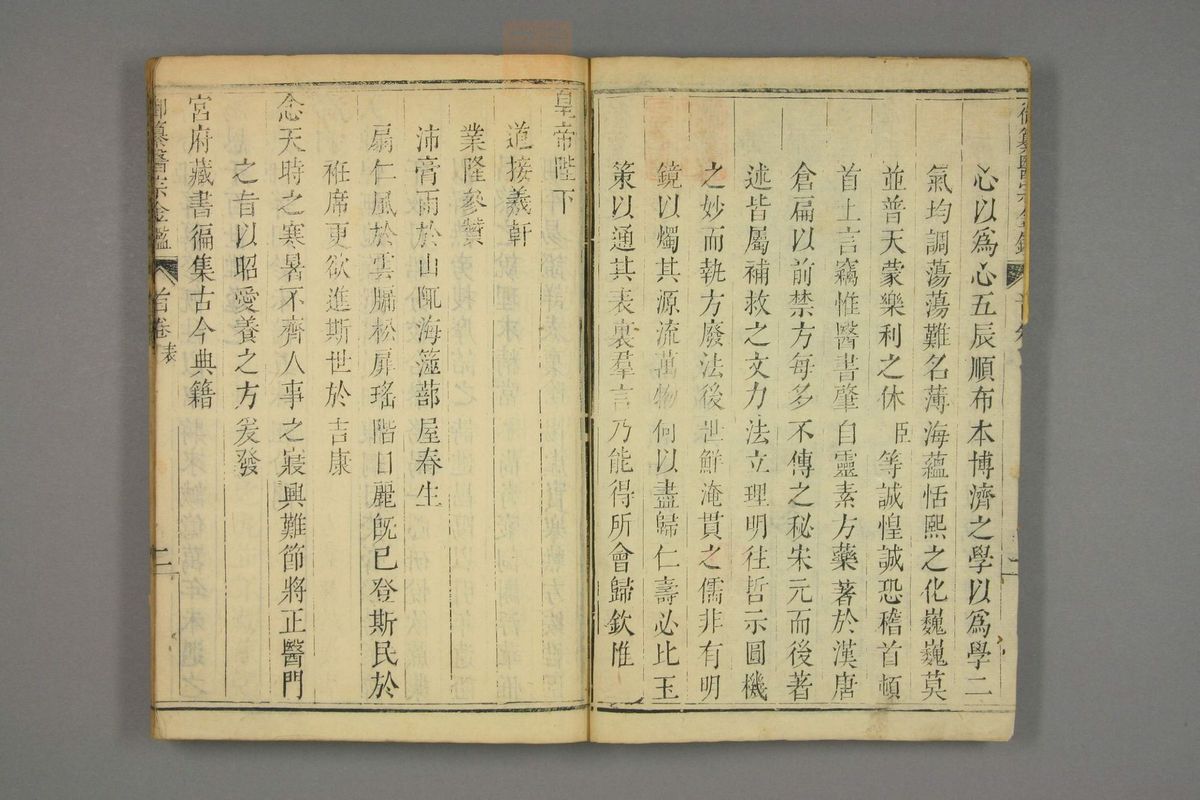 心以爲心五辰順布本博濟之學以爲學二
氣均調蕩蕩難名薄海蘊恬熙之化巍巍莫
並普天蒙樂利之休臣等誠惶誠恐稽首頓
首上言竊惟醫書肇自靈素方藥著於漢唐
倉扁以前禁方每多不傳之秘宋元而後著
述皆屬補救之文力法立理明往哲示圓機
之妙而執方廢法後世鮮淹貫之儒非有明
鏡以燭其源流萬物何以盡歸仁壽必比玉
策以通其表裏羣言乃能得所會歸欽惟
皇帝陛下
道接羲軒
業隆參贊
沛膏雨於山陬海澨蔀屋春生
扇仁風於雲牖松扉瑤階日麗旣已登斯民於
袵席更欲進斯世於吉康
念天時之寒暑不齊人事之寢興難節將正醫門
之旨以昭愛養之方爰發
宮府藏書徧集古今典籍
御纂醫宗金鑑
首卷 表
二